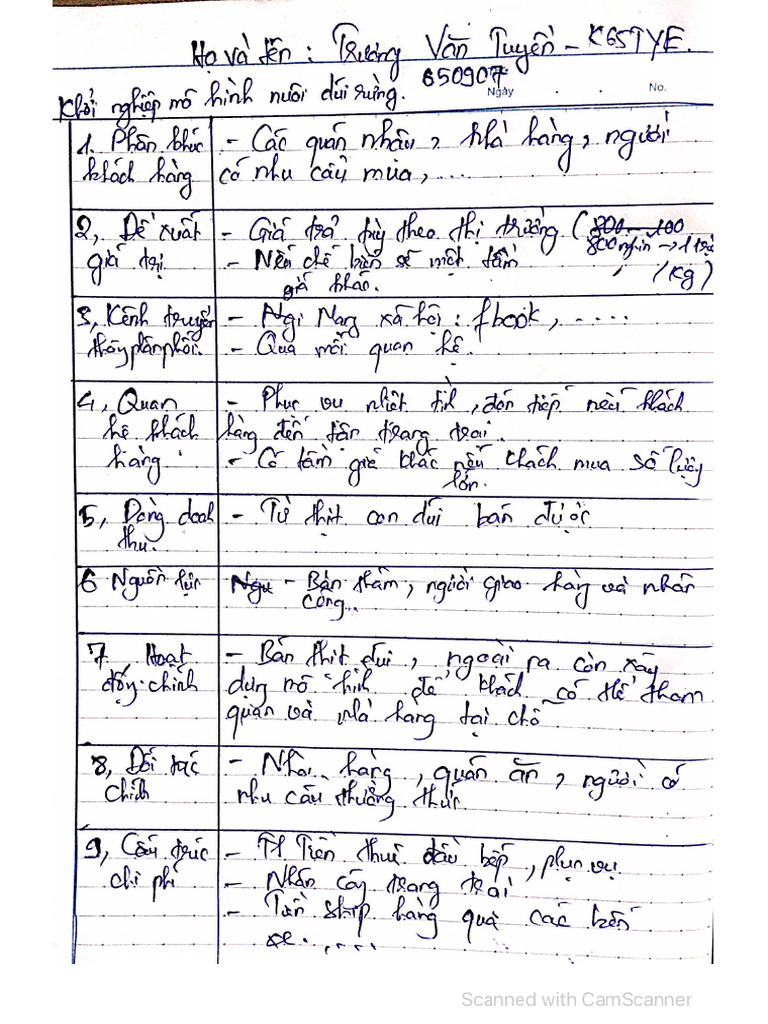 Họ và tên : Trương Văn Tuyền - K65TYE.
650907
Ngày . . No.
Khởi nghiệp mô hình nuôi dúi rừng.
1. Phân khúc khách hàng
- Các quán nhậu, nhà hàng, người
có nhu cầu mua, ....
2, Đề xuất giá trị
- Giá trả tùy theo thị trường (800 - 100
800 nghìn → 1
(kg)
- Nếu chế biến sẽ một tầm
giá khác.
3, Kênh truyền thông phân phối.
- Mạng xã hội : fbook, .....
- Qua mối quan hệ.
4, Quan hệ khách hàng
- Phục vụ nhiệt tình, đón tiếp nếu khách
hàng đến tận trang trại.
- Có tầm giá khác nếu khách mua số lượng
lớn.
5, Dòng doanh thu.
- Từ thịt con dúi bán được
6 Nguồn lực
Ngu - Bản thân, người giao hàng và nhân
công..
7, Hoạt động chính
- Bán thịt dúi, ngoài ra còn xây
dựng mô hình để khách có thể tham
quan và nhà hàng tại chỗ
8, Đối tác chính
- Nhà hàng, quán ăn, người có
nhu cầu thưởng thức
9, Cấu trúc chi phí
- Tiền thuê đầu bếp, phục vụ
- Nhân công trang trại
- Tiền ship hàng qua các bến
xe. , ....
Scanned with CamScanner